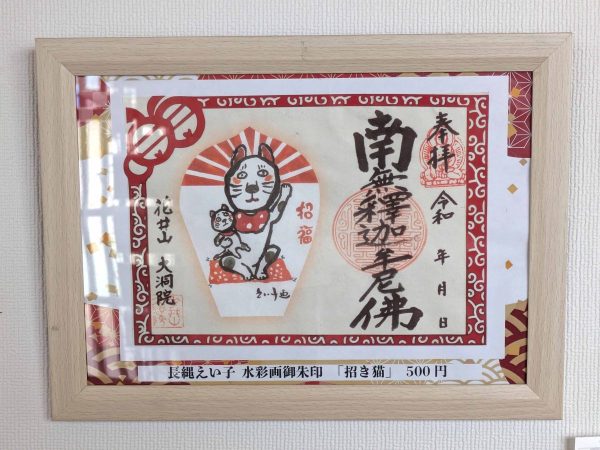 奉拝
令和 年 月 日
南無釋迦牟尼佛
招福
花井山 大洞院
長縄えい子 水彩画御朱印 「招き猫」 500円